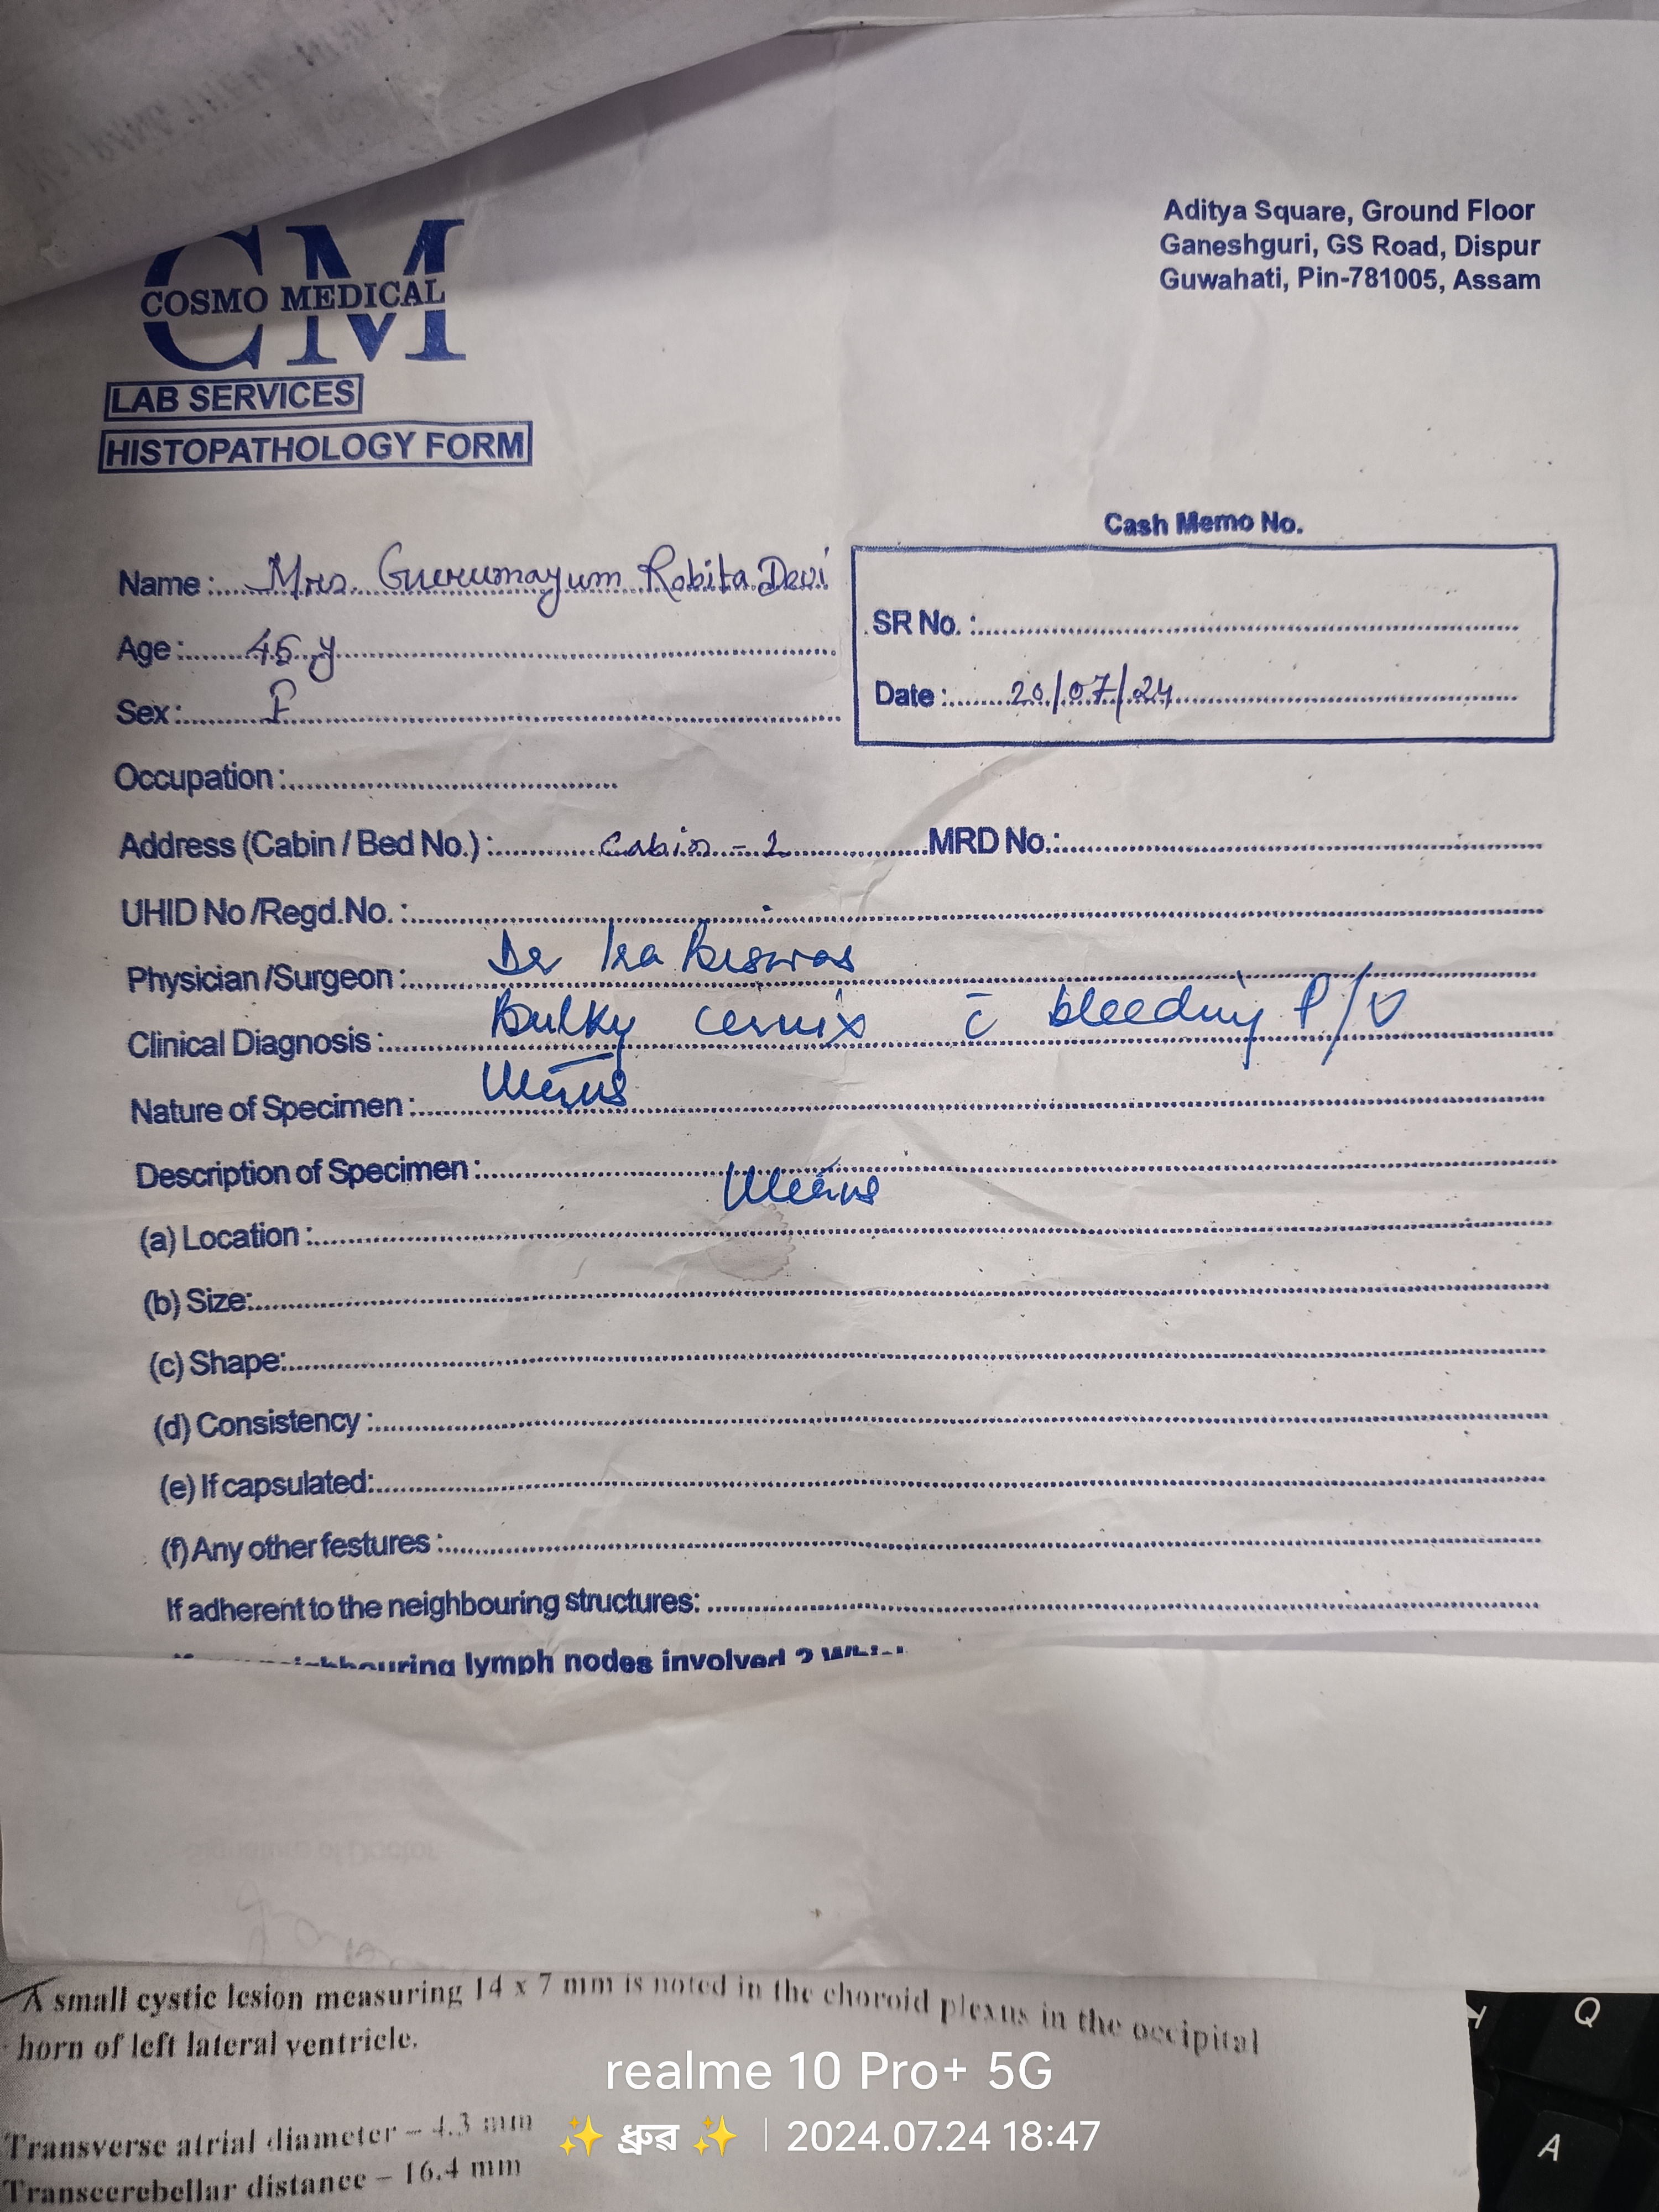 Aditya Square, Ground Floor
Ganeshguri, GS Road, Dispur
Guwahati, Pin-781005, Assam
CM
COSMO MEDICAL
LAB SERVICES
HISTOPATHOLOGY FORM
Cash Memo No.
Name : Mrs. Gurumayum Robita Devi
SR No. :
Age : 45 y
Date : 20/07/24
Sex : F
Occupation :
Address (Cabin / Bed No.) : Cabin - 2 MRD No.:
UHID No /Regd.No. :
Physician /Surgeon : Dr Ira Biswas
Clinical Diagnosis : Bulky cervix c̄ bleeding P/V
Nature of Specimen : Uterus
Description of Specimen :
Uterus
(a) Location :
(b) Size:
(c) Shape:
(d) Consistency :
(e) If capsulated:
(f) Any other festures :
If adherent to the neighbouring structures:
neighbouring lymph nodes involved ?
Signature of Doctor
A small cystic lesion measuring 14 x 7 mm is noted in the choroid plexus in the occipital
horn of left lateral ventricle.
Transverse atrial diameter – 4.3 mm
Transcerebellar distance – 16.4 mm
Q
A
realme 10 Pro+ 5G
✨ ধ্রুৱ ✨ | 2024.07.24 18:47